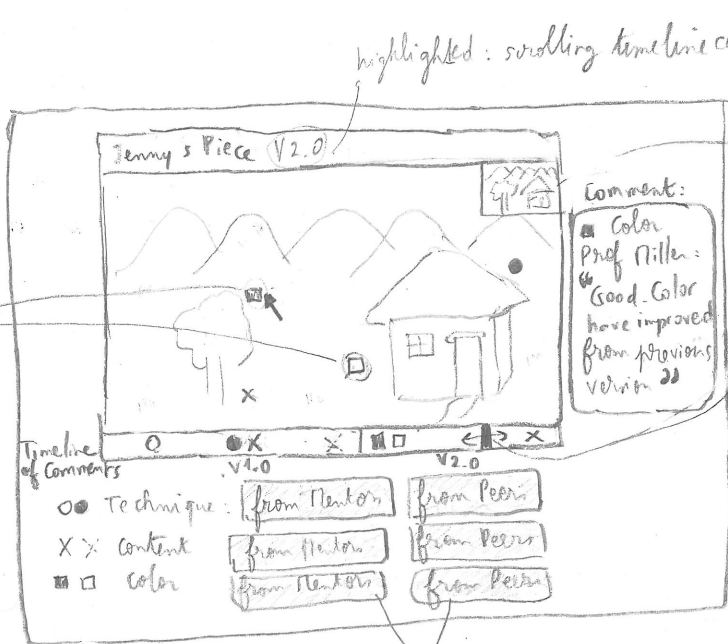 highlighted : scrolling timeline
Jenny's Piece V2.0
Comment:
Color
Prof Miller:
"Good. Color
have improved
from previous
version"
Timeline
of Comments
V1.0 V2.0
Technique: from Mentors from Peers
X X Content from Mentors from Peers
Color from Mentors from Peers